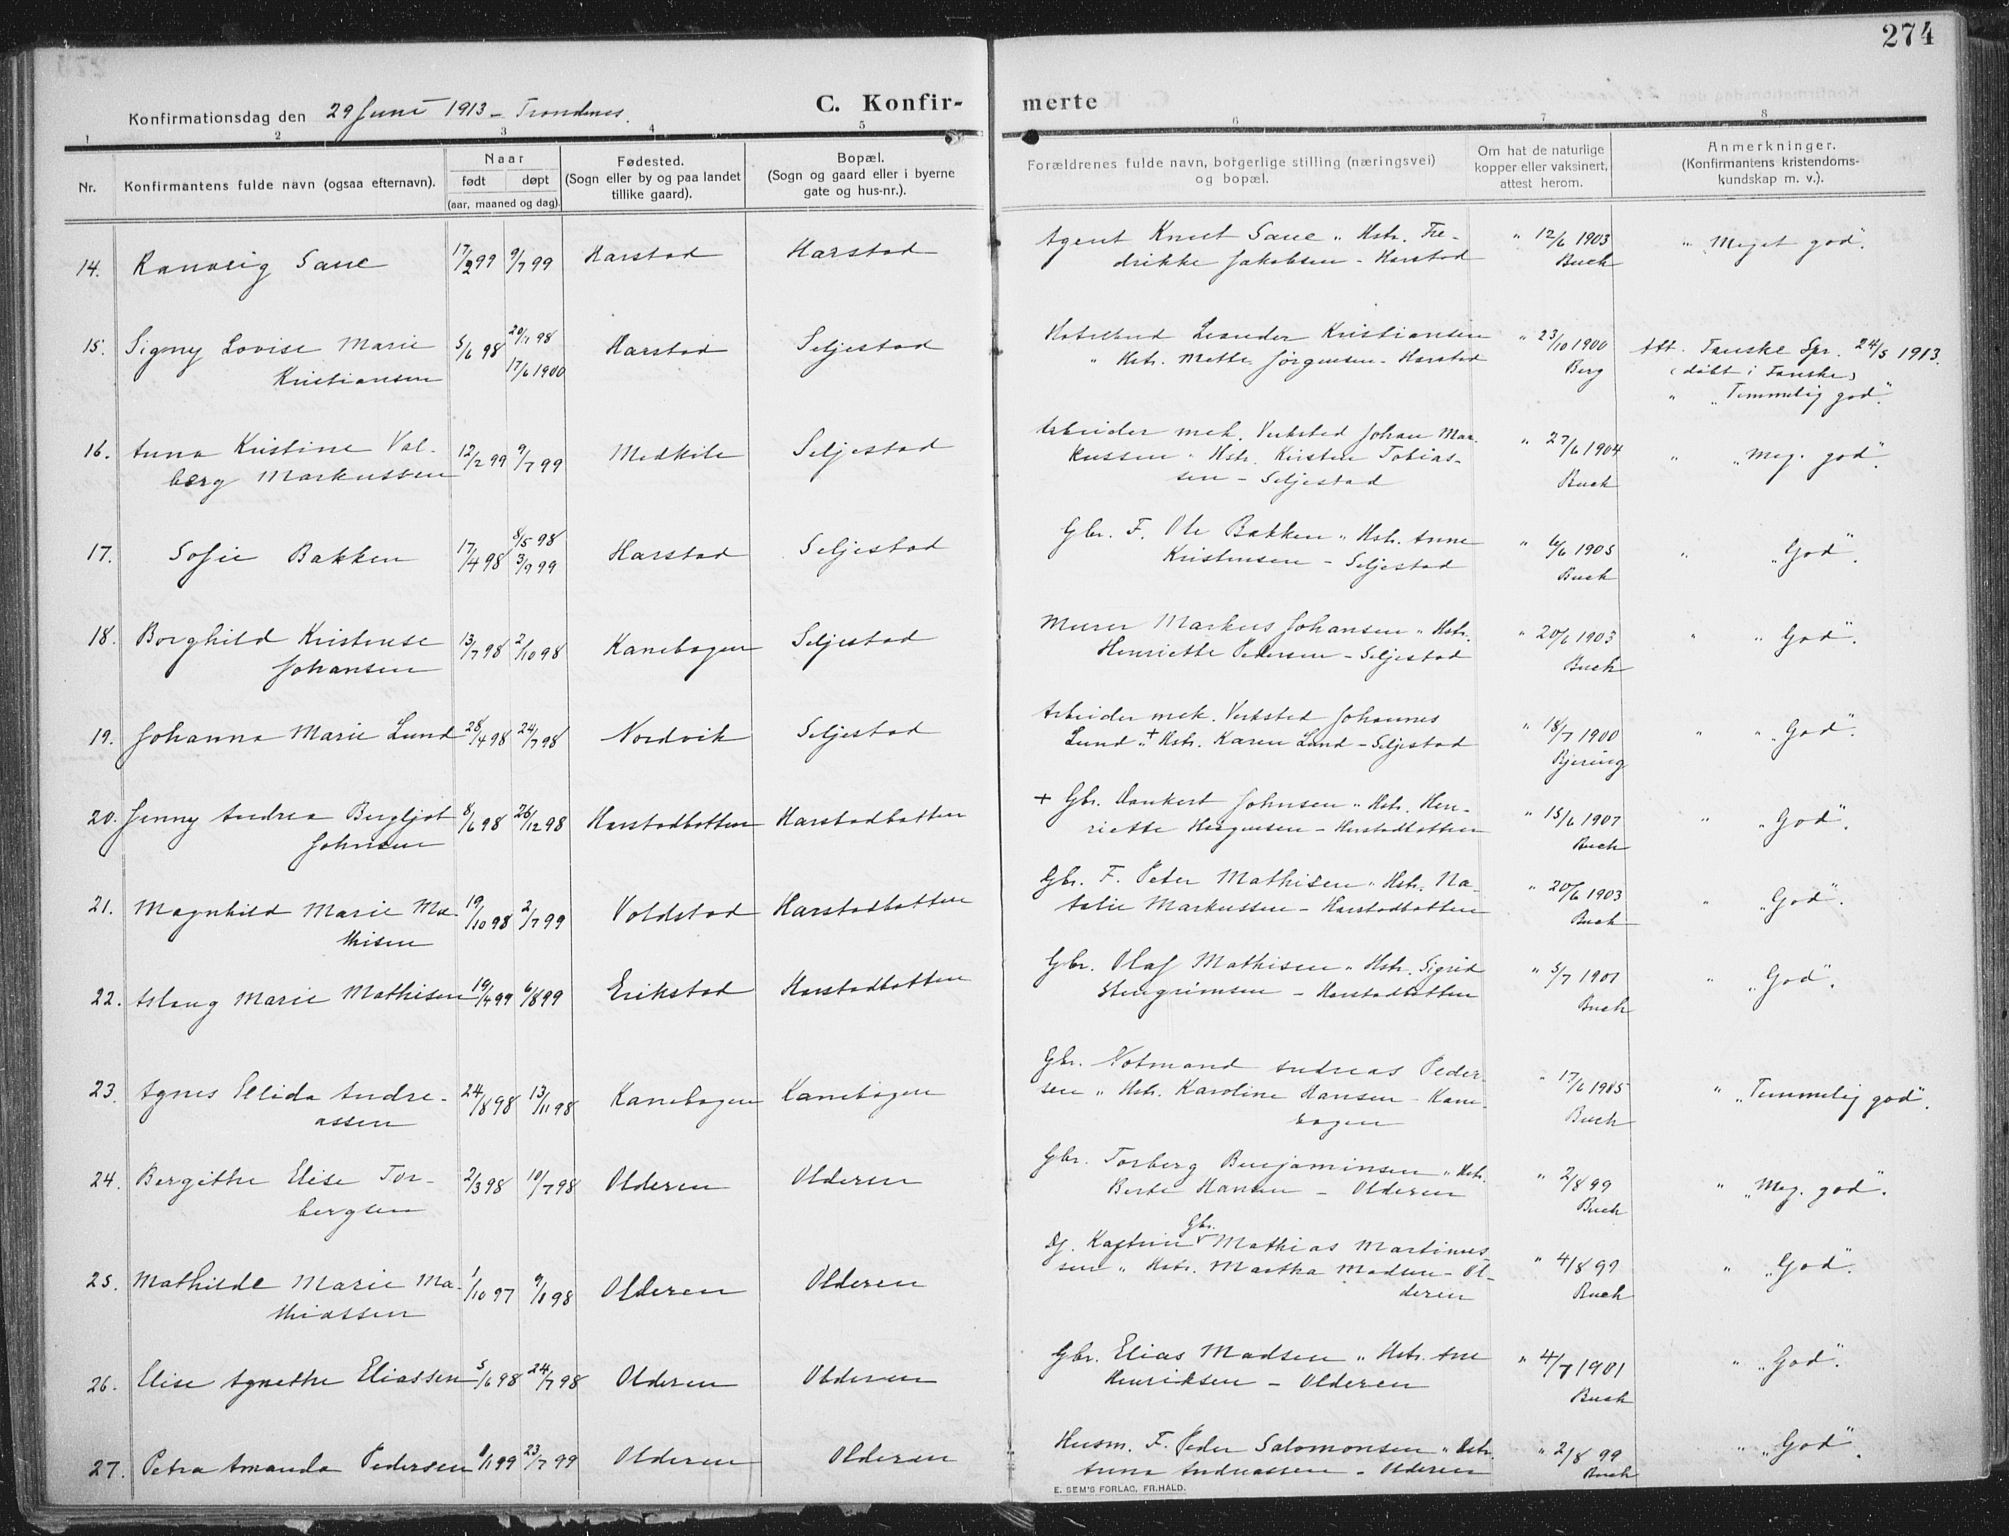 274
Konfirmationsdag den 29 Juni 1913 – Trondenes.
C. Konfir-
merte
1 2 3 4 5 6 7 8
Nr.
Konfirmantens fulde navn (ogsaa efternavn).
Naar
født døpt
(aar, maaned og dag)
Fødested.
(Sogn eller by og paa landet
tillike gaard).
Bopæl.
(Sogn og gaard eller i byerne
gate og hus-nr.).
Forældrenes fulde navn, borgerlige stilling (næringsvei)
og bopæl.
Om hat de naturlige
kopper eller vaksinert,
attest herom.
Anmerkninger.
(Konfirmantens kristendoms-
kundskap m. v.).
14. Ranveig Saue 17/2 99 9/7 99 Harstad Harstad Agent Knut Saue „ Hstr. Fre- „ 12/6 1903 „ „Meget god“.
drikke Jakobsen – Harstad Buch
15. Signy Lovise Marie 5/6 98 20/7 98 Harstad Seljestad Leander Kristiansen „ 23/10 1900 Att. Tanske Spr. 24/5 1913.
Kristiansen 17/6 1900 „ Hstr. Mette Jørgensen – Harstad Berg (døbt i Tanske)
„ „Temmelig god“.
16. Anna Kristine Val- 12/2 99 9/7 99 Medkile Seljestad Arbeider mek. Verksted Johan Mar- „ 27/6 1904 „ „Meg. god“.
berg Markussen kussen „ Hstr. Kirsten Tobias- Buch
sen – Seljestad
17. Sofie Bakken 17/4 98 8/5 98 Harstad Seljestad Gbr. F. Ole Bakken „ Hstr. Anne „ 6/6 1905 „ „God“.
3/9 99 Kristensen – Seljestad Buch
18. Borghild Kristense 13/7 98 2/10 98 Kanebogen Seljestad Murer Markus Johansen „ Hstr. „ 20/6 1903 „ „God“.
Johansen Henriette Pedersen – Seljestad Buch
19. Johanna Marie Lund 28/4 98 24/7 98 Nordvik Seljestad Arbeider mek. Verksted Johannes „ 18/7 1900 „ „God“.
Lund „ + Hstr. Karen Lund – Seljestad Bjering
20. Jenny Andrea Bergljot 8/6 98 26/12 98 Harstadbotten Harstadbotten + Gbr. Johnsen „ Hstr. Hen- „ 15/6 1907 „ „God“.
Johnsen riette – Harstadbotten Buch
21. Magnhild Marie Ma- 19/10 98 2/7 99 Voldstad Harstadbotten Gbr. F. Peter Mathisen „ Hstr. Na- „ 20/6 1903 „ „God“.
thisen talie Markussen – Harstadbotten Buch
22. Aslaug Marie Mathisen 19/4 99 6/8 99 Erikstad Harstadbotten Gbr. Olaf Mathisen „ Hstr. Sigrid „ 5/7 1901 „ „God“.
Stengrimsen – Harstadbotten Buch
23. Agnes Elida Andre- 24/8 98 13/11 98 Kanebogen Kanebogen Gbr. Notmand Andreas Peder- „ 17/6 1905 „ „Temmelig god“.
assen sen „ Hstr. Karoline Hansen – Kane- Buch
bogen
24. Bergithe Elise Tor- 2/3 98 10/7 98 Olderen Olderen Gbr. Torberg Benjaminsen „ Hstr. „ 2/8 99 „ „Meg. god“.
bergsen Berte Hansen – Olderen Buch
25. Mathilde Marie Ma- 1/10 97 9/1 98 Olderen Olderen Gbr. Mathias Martinus- „ 4/8 99 „ „God“.
thiassen sen „ Hstr. Martha Madsen – Ol- Buch
deren
26. Elise Agnethe Eliassen 5/6 98 24/7 98 Olderen Olderen Gbr. Elias Madsen „ Hstr. Ane „ 4/7 1901 „ „God“.
Henriksen – Olderen Buch
27. Petra Amanda Pedersen 1/1 99 23/7 99 Olderen Olderen Husm. F. Peder Salomonsen „ Hstr. „ 2/8 99 „ „God“.
Anna Andreassen – Olderen Buch
E. SEM'S FORLAG, FR.HALD.